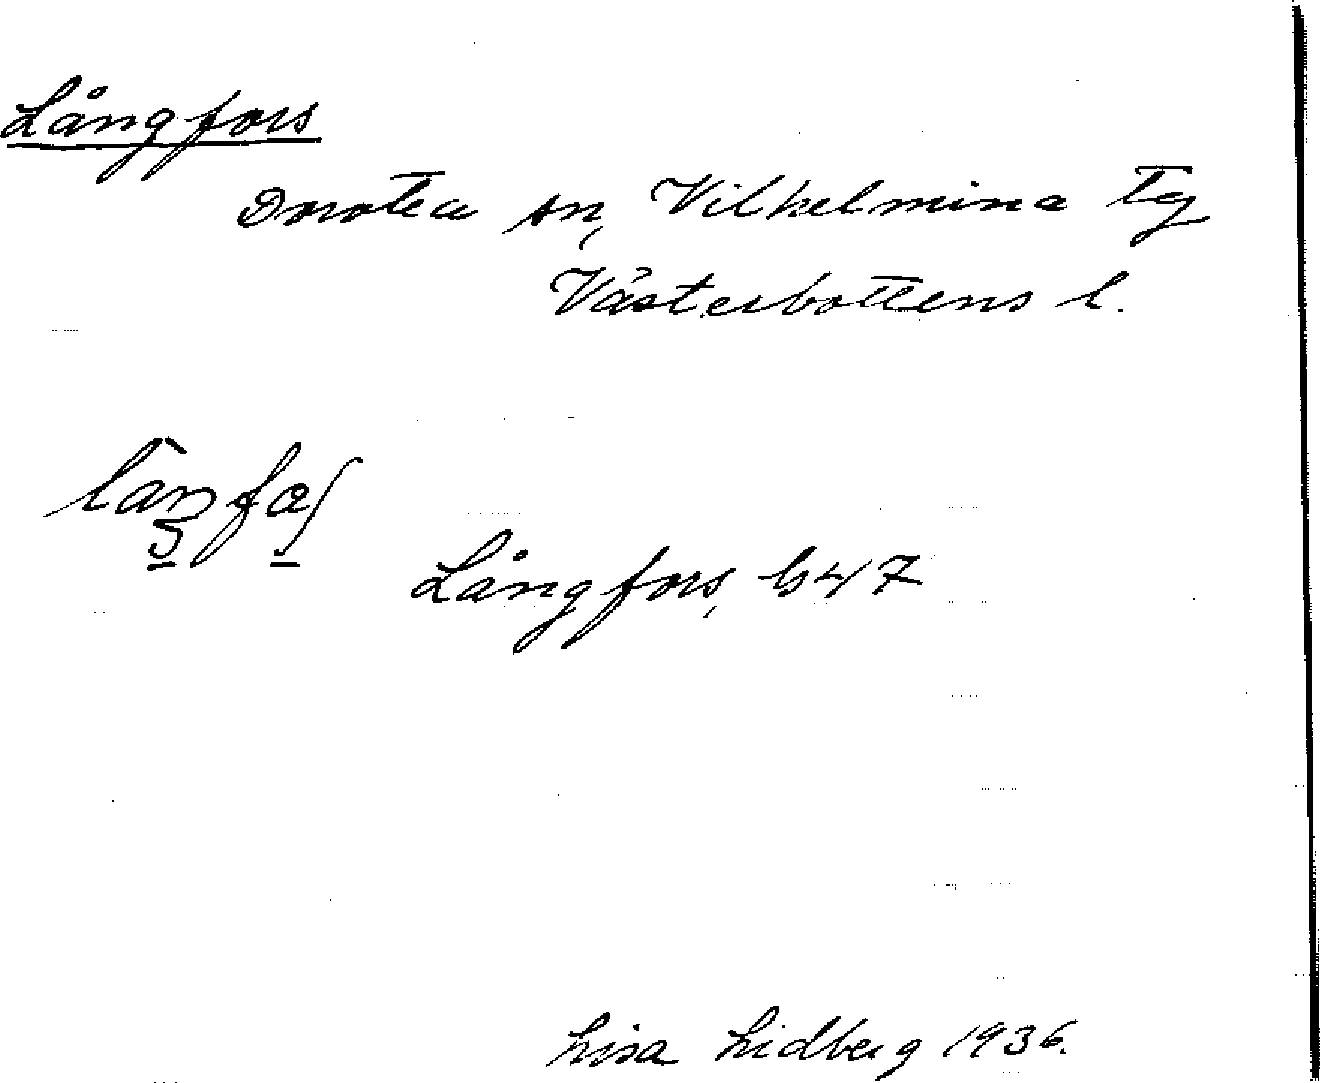 Långfors
Dorotea sn, Vilhelmina tg
Västerbottens l.
Långfors, b47
Lisa Lidberg 1936.